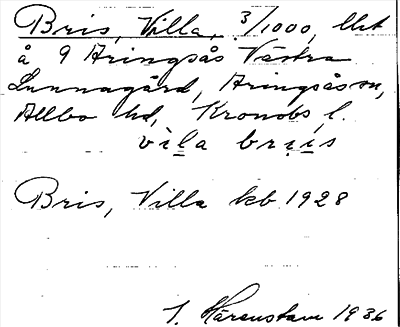 Bris, Villa, 3/1000, lht
å 9 Aringsås Västra
Lunnagård, Aringsås sn,
Allbo hd, Kronobs l.
vìla brịis
Bris, Villa kb 1928
1936